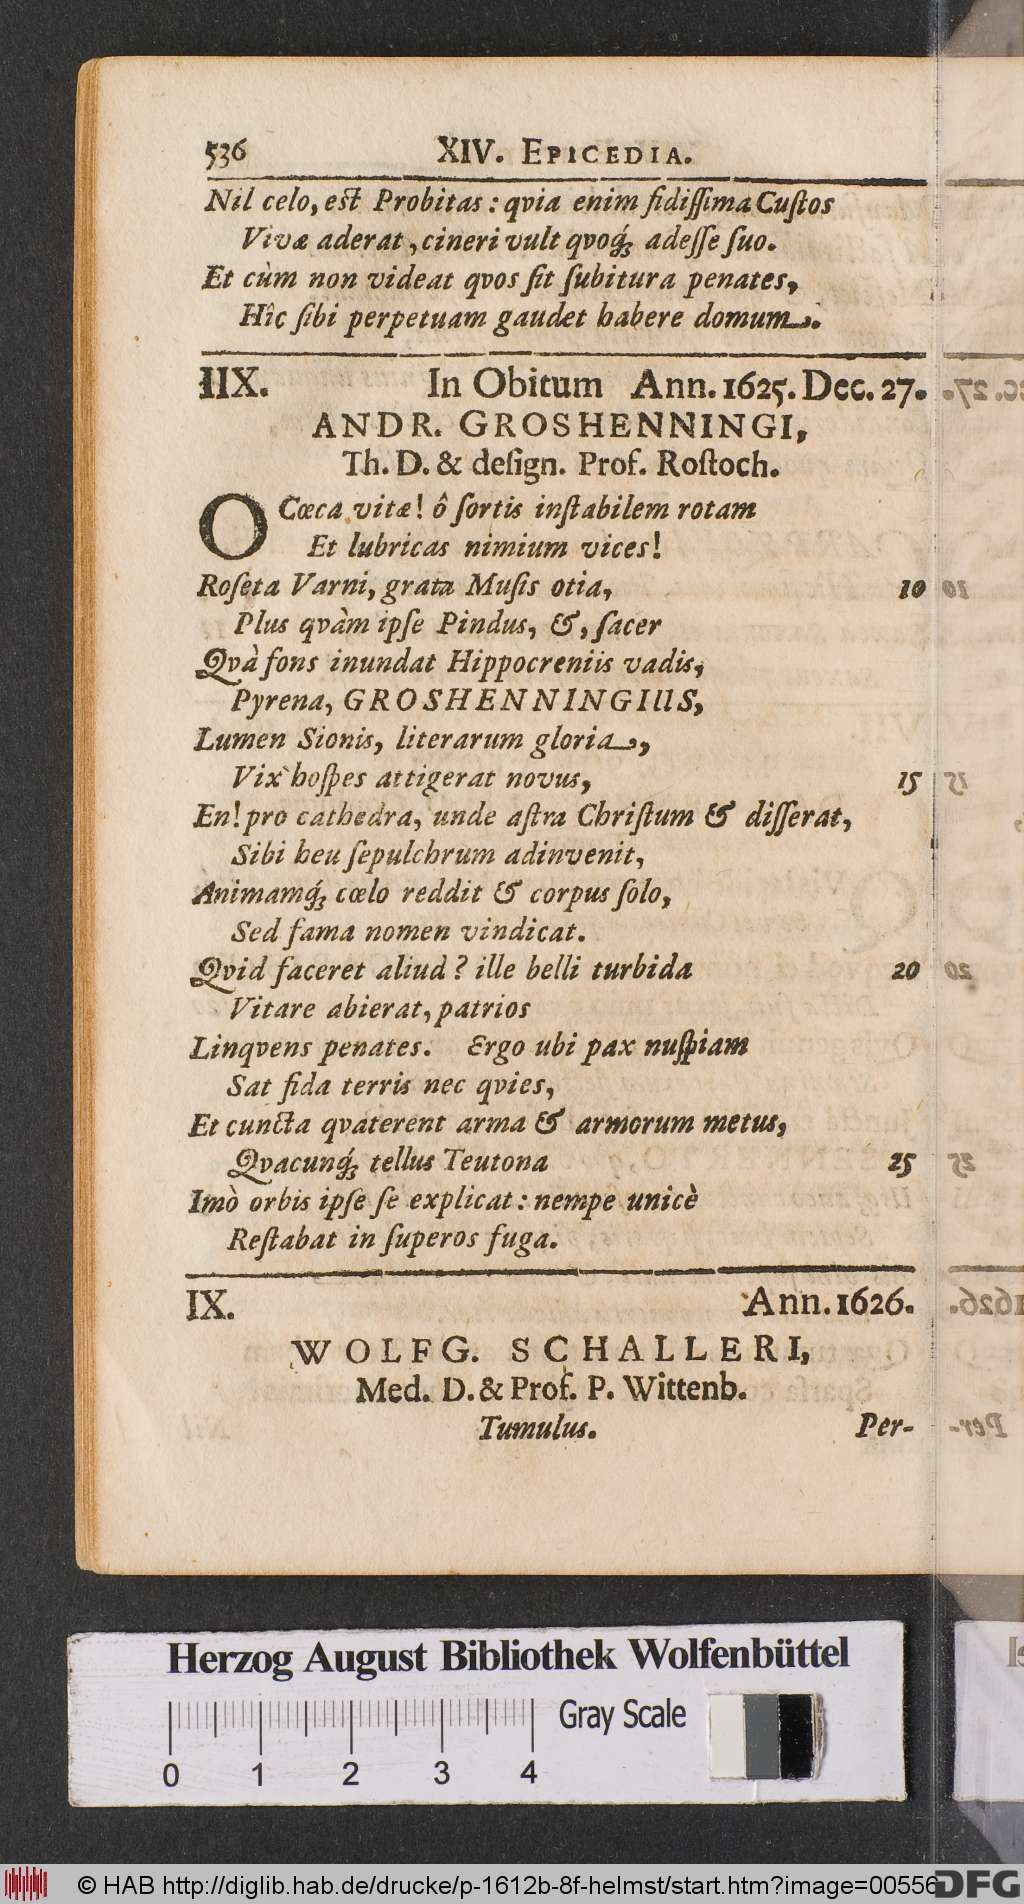 536 XIV. EPICEDIA.
Nil celo, est Probitas: qvia enim fidiſſima Cuſtos
Vivæ aderat, cineri vult qvoq́; adeſſe ſuo.
Et cùm non videat qvos ſit ſubitura penates,
Hîc ſibi perpetuam gaudet habere domum.
IIX. In Obitum Ann. 1625. Dec. 27.
ANDR. GROSHENNINGI,
Th. D. & deſign. Prof. Roſtoch.
O Cœca vitæ! ô ſortis inſtabilem rotam
Et lubricas nimium vices!
Roſeta Varni, grata Muſis otia, 10
Plus qvàm ipſe Pindus, &, ſacer
Qvà fons inundat Hippocreniis vadis,
Pyrena, GROSHENNINGIUS,
Lumen Sionis, literarum gloria,
Vix hoſpes attigerat novus, 15
En! pro cathedra, unde aſtra Chriſtum & diſſerat,
Sibi heu ſepulchrum adinvenit,
Animamq́; cœlo reddit & corpus ſolo,
Sed fama nomen vindicat.
Qvid faceret aliud? ille belli turbida 20
Vitare abierat, patrios
Linqvens penates. Ergo ubi pax nuſpiam
Sat fida terris nec qvies,
Et cuncta qvaterent arma & armorum metus,
Qvacunq́; tellus Teutona 25
Imò orbis ipſe ſe explicat: nempe unicè
Reſtabat in ſuperos fuga.
IX. Ann. 1626.
WOLFG. SCHALLERI,
Med. D. & Prof. P. Wittenb.
Tumulus. Per-
Herzog August Bibliothek Wolfenbüttel
Gray Scale
0 1 2 3 4
© HAB http://diglib.hab.de/drucke/p-1612b-8f-helmst/start.htm?image=00556
DFG